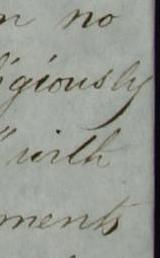 no
igiously
" with
ments